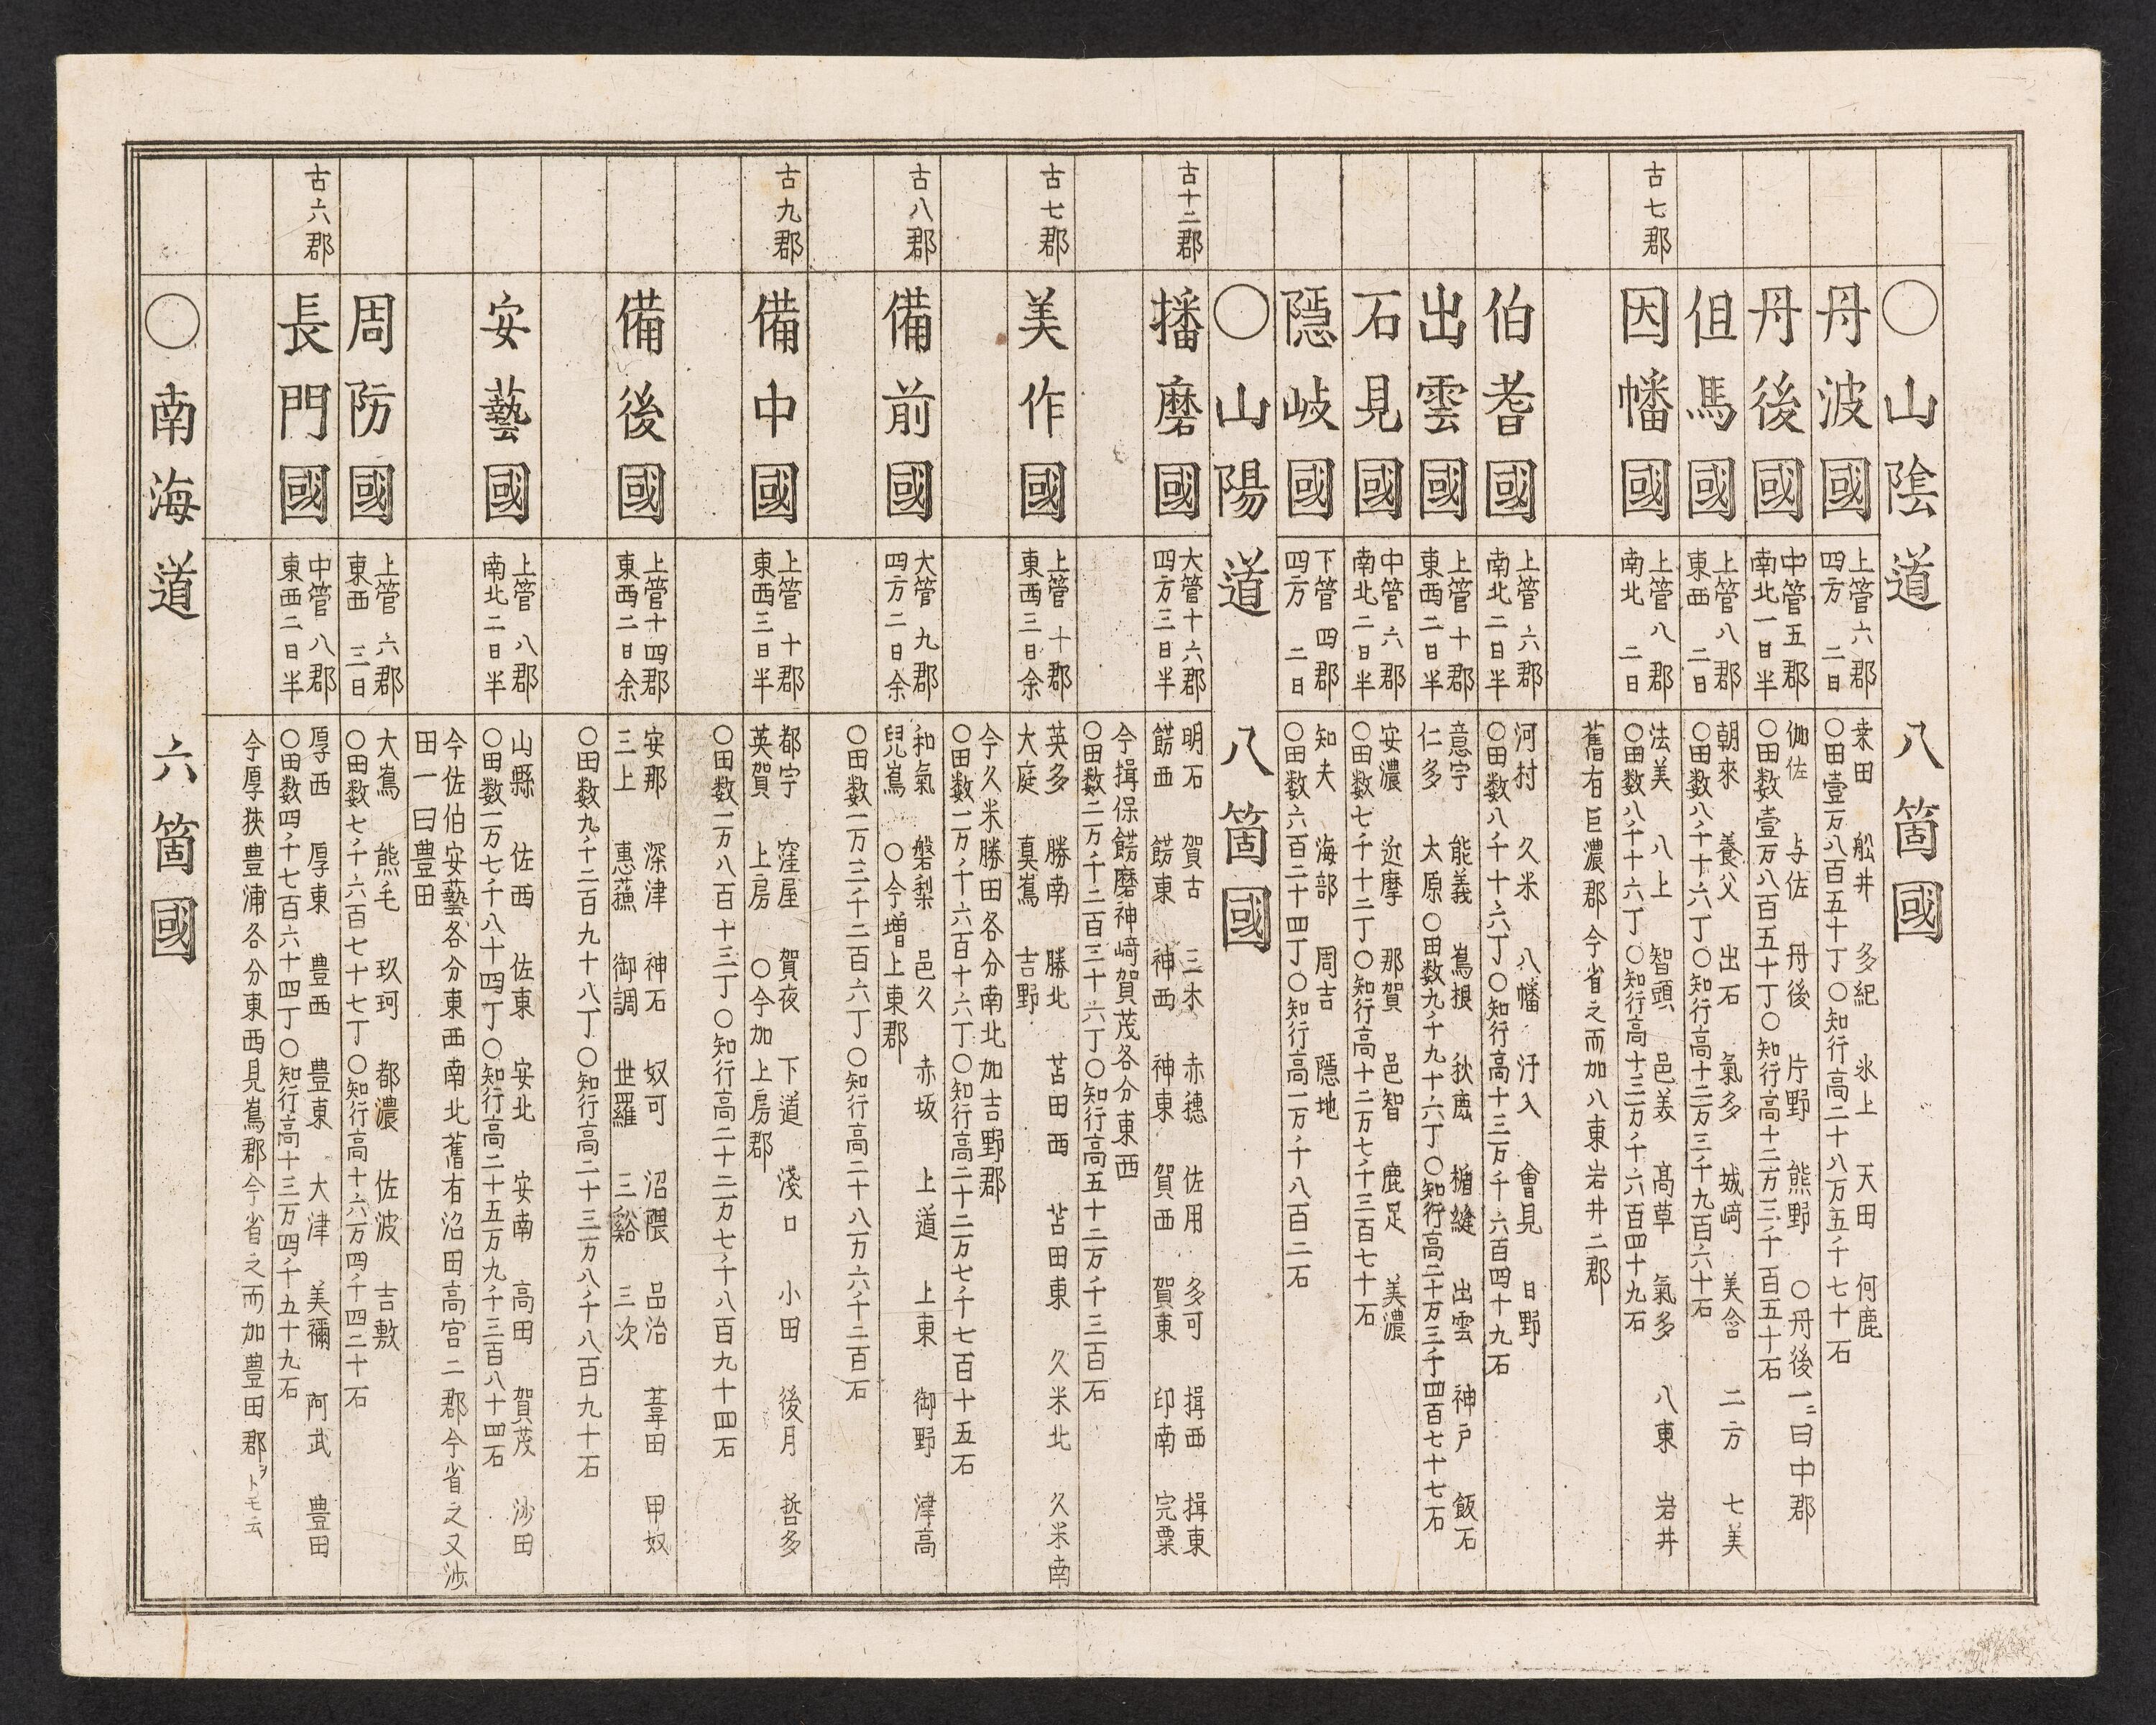 〇山陰道 八箇國
丹波國 上管六郡 四方二日 桒田 舩井 多紀 氷上 天田 何鹿 〇田壹万八百五十丁〇知行高二十八万五千七十石
丹後國 中管五郡 南北一日半 伽佐 与佐 丹後 片野 熊野 〇丹後一ニ曰中郡 〇田数壹万八百五十丁〇知行高十二万三千百五十石
但馬國 上管八郡 東西二日 朝來 養父 出石 氣多 城﨑 美含 二方 七美 〇田数八千十六丁〇知行高十二万三千九百六十石
古七郡 因幡國 上管八郡 南北二日 法美 八上 智頭 邑美 髙草 氣多 八東 岩井 〇田数八千十六丁〇知行高十三万千六百四十九石
舊有巨濃郡今省之而加八東岩井二郡
伯耆國 上管六郡 南北二日半 河村 久米 八幡 汙入 會見 日野 〇田数八千十六丁〇知行高十三万千六百四十九石
出雲國 上管十郡 東西二日半 意宇 能義 嶌根 秋鹿 楯縫 出雲 神戸 飯石 仁多 大原 〇田数九千九十六丁〇知行高二十万三千四百七十七石
石見國 中管六郡 南北二日半 安濃 近摩 那賀 邑智 鹿足 美濃 〇田数七千十二丁〇知行高十二万七千三百七十石
隱岐國 下管四郡 四方二日 知夫 海部 周吉 隱地 〇田数六百二十四丁〇知行高一万千八百二石
〇山陽道 八箇國
古十二郡 播磨國 大管十六郡 四方三日半 明石 賀古 三木 赤穂 佐用 多可 揖西 揖東 餝西 餝東 神西 神東 賀西 賀東 印南 完粟
今揖保餝磨神﨑賀茂各分東西 〇田数二万千二百三十六丁〇知行高五十二万千三百石
古七郡 美作國 上管十郡 東西三日余 英多 勝南 勝北 苫田西 苫田東 久米北 久米南 大庭 真嶌 吉野
今久米勝田各分南北加吉野郡 〇田数一万千六百十六丁〇知行高二十二万七千七百十五石
古八郡 備前國 大管九郡 四方二日余 和氣 磐梨 邑久 赤坂 上道 上東 御野 津高 兒嶌 〇今増上東郡
〇田数一万三千二百六丁〇知行高二十八万六千二百石
古九郡 備中國 上管十郡 東西三日半 都宇 窪屋 賀夜 下道 淺口 小田 後月 哲多 英賀 上房 〇今加上房郡
〇田数一万八百十三丁〇知行高二十二万七千八百九十四石
備後國 上管十四郡 東西二日余 安那 深津 神石 奴可 沼隈 品治 葦田 甲奴 三上 惠蘓 御調 世羅 三谿 三次
〇田数九千二百九十八丁〇知行高二十三万八千八百九十石
安藝國 上管八郡 南北二日半 山縣 佐西 佐東 安北 安南 高田 賀茂 沙田 〇田数一万七千八十四丁〇知行高二十五万九千三百八十四石
今佐伯安藝各分東西南北舊有沼田高宮二郡今省之又沙田一曰豊田
周防國 上管六郡 東西三日 大嶌 熊毛 玖珂 都濃 佐波 吉敷 〇田数七千六百七十七丁〇知行高十六万四千四二十石
古六郡 長門國 中管八郡 東西二日半 厚西 厚東 豊西 豊東 大津 美禰 阿武 豊田 〇田数四千七百六十四丁〇知行高十三万四千五十九石
今厚狹豊浦各分東西見嶌郡今省之而加豊田郡ヲトモ云
〇南海道 六箇國